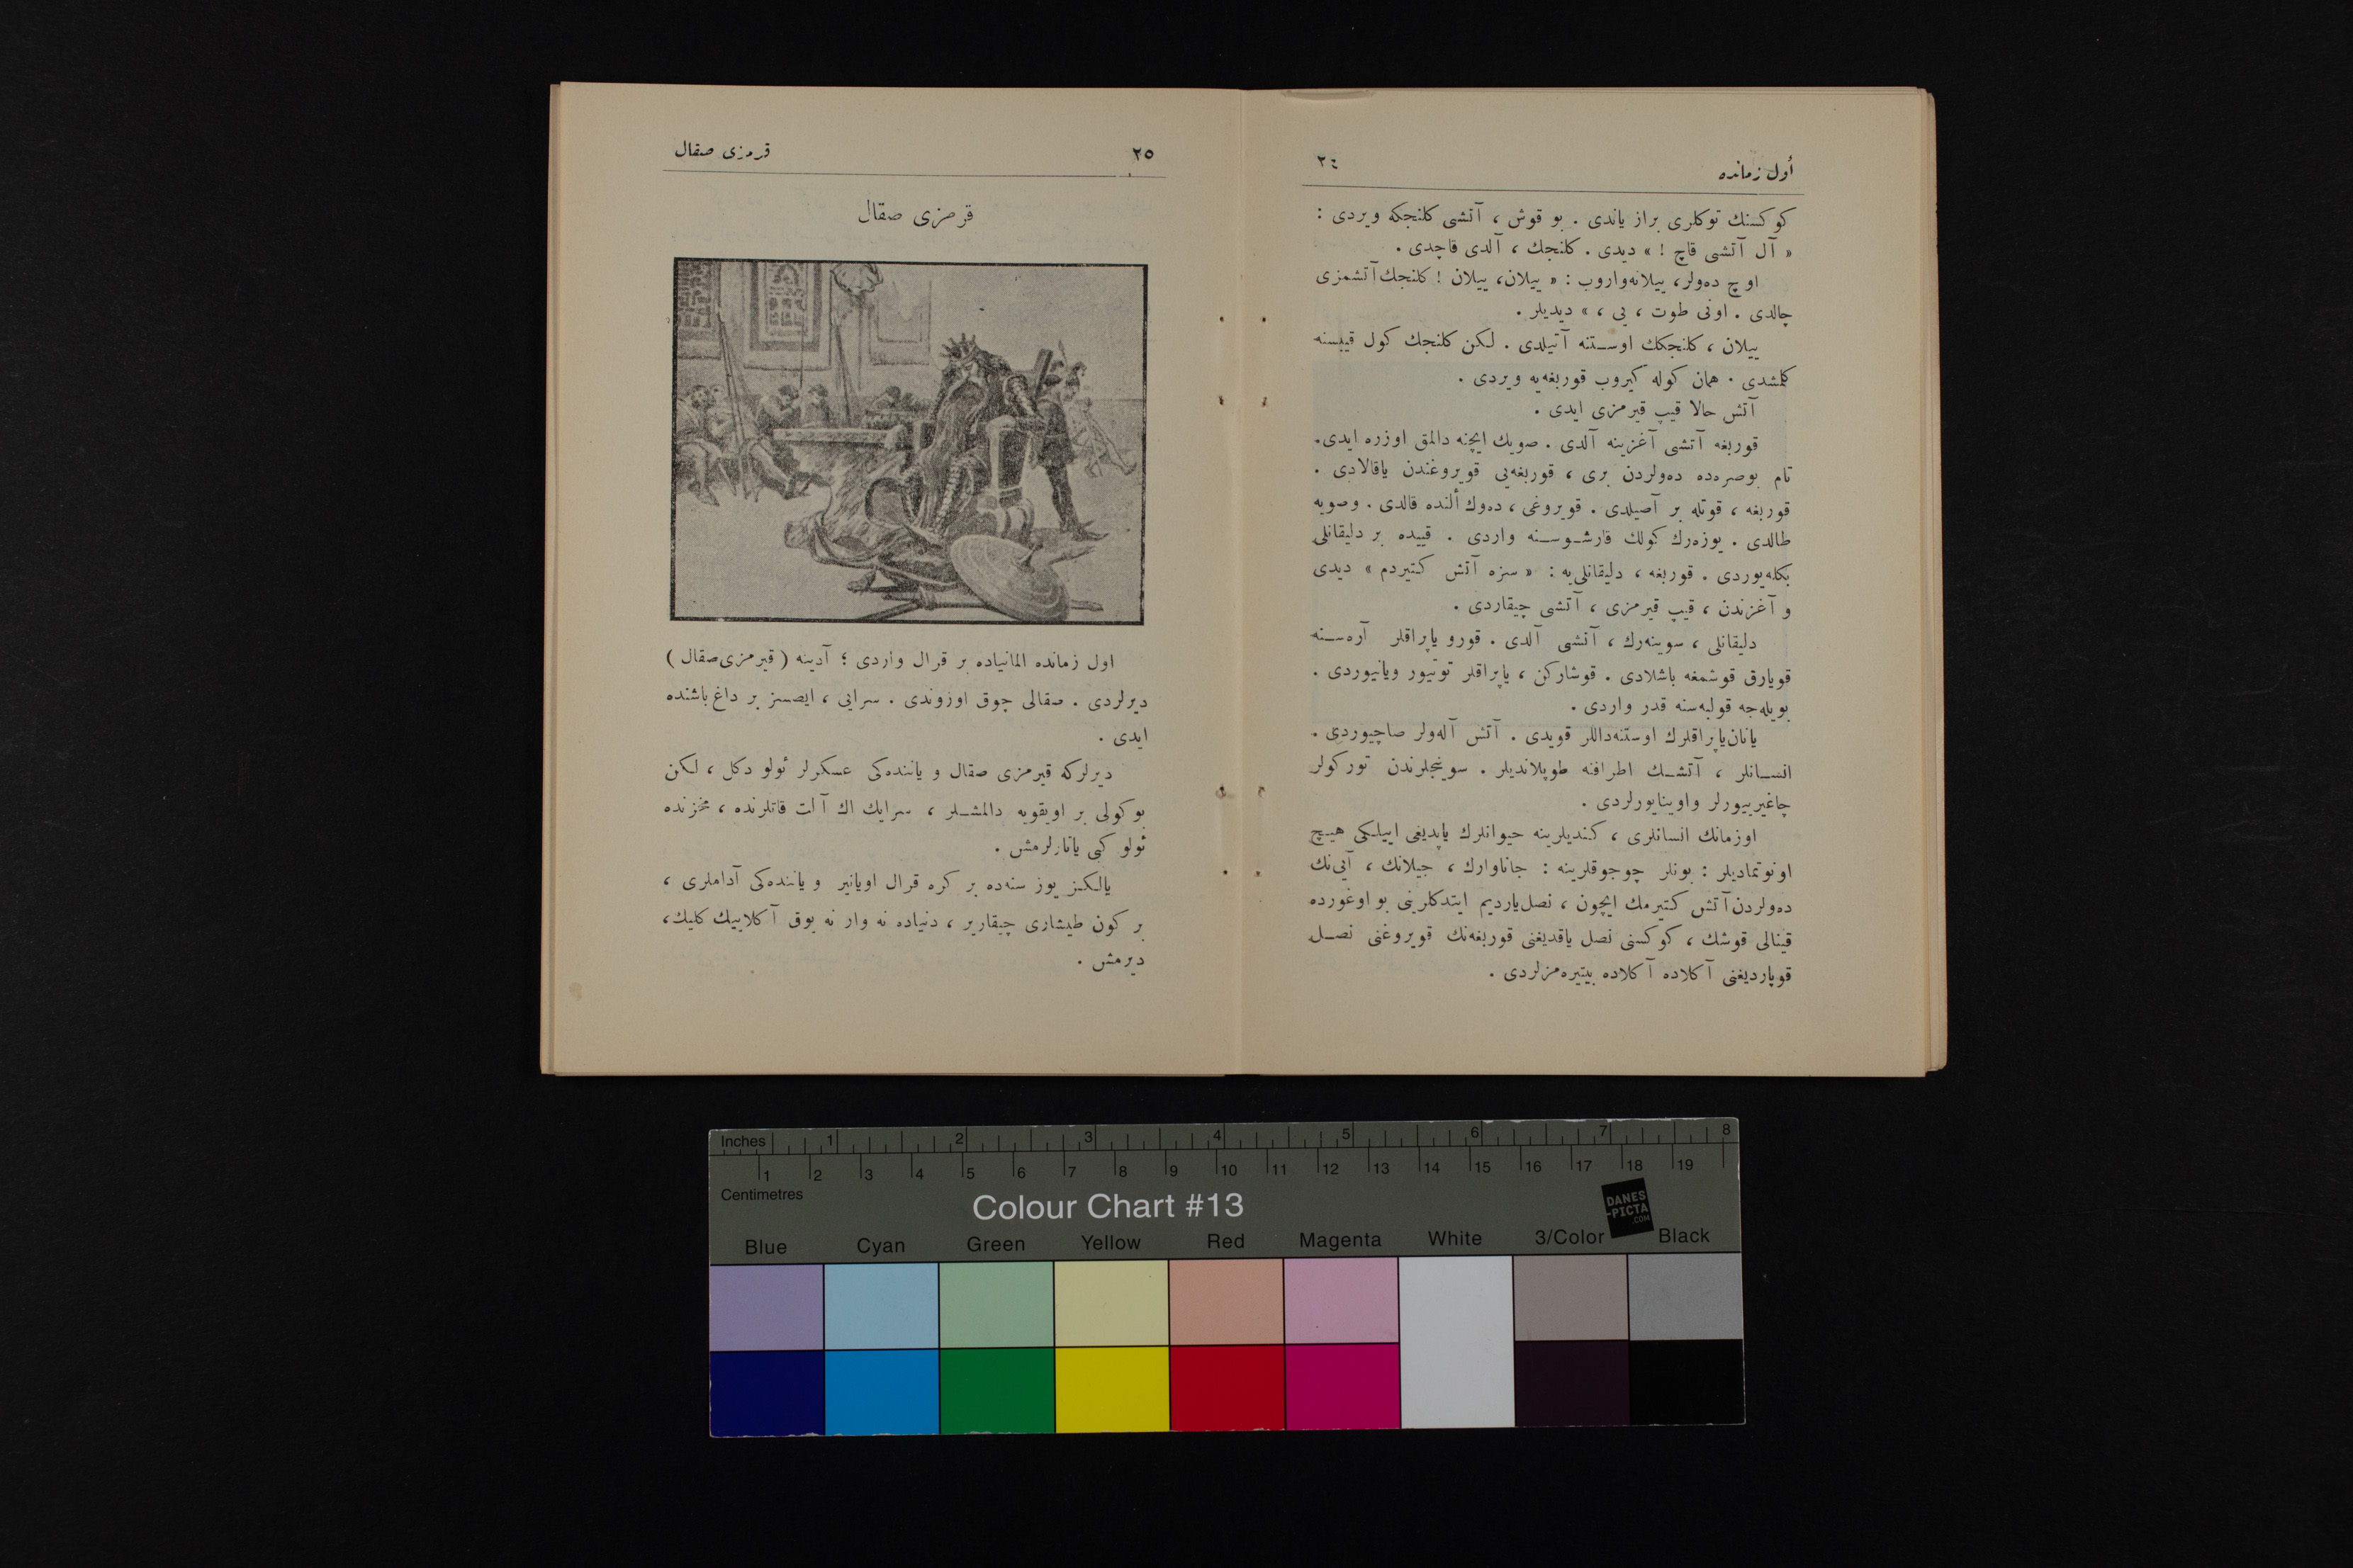 أول زمانده
٢٤
كوكسنك توكلرى براز ياندى . بو قوش ، آتشى كلنجكه ويردى :
« آل آتشى قاچ ! » ديدى . كلنجك ، آلدى قاچدى .
اوچ ده‌ولر، ييلانه‌واروب : « ييلان، ييلان ! كلنجك آتشمزى
چالدى . اونى طوت ، يى ، » ديديلر .
ييلان ، كلنجكك اوستنه آتيلدى . لكن كلنجك كول قييسنه
كلمشدى . همان كوله كيروب قوربغه‌يه ويردى .
آتش حالا قيپ قيرمزى ايدى .
قوربغه آتشى آغزينه آلدى . صويك ايچنه دالمق اوزره ايدى.
تام بوصره‌ده ده‌ولردن برى ، قوربغه‌يى قويروغندن ياقالادى .
قوربغه ، قوتله بر آصيلدى . قويروغى ، ده‌وك ألنده قالدى . وصويه
طالدى . يوزه‌رك كولك قارشوسنه واردى . قييده بر دليقانلى
بكله‌يوردى . قوربغه ، دليقانلى‌يه : « سزه آتش كتيردم » ديدى
و آغزندن ، قيپ قيرمزى ، آتشى چيقاردى .
دليقانلى ، سوينه‌رك ، آتشى آلدى . قورو ياپراقلر آره‌سنه
قويارق قوشمغه باشلادى . قوشاركن ، ياپراقلر توتيور ويانيوردى .
بويله‌جه قولبه‌سنه قدر واردى .
يانان‌ياپراقلرك اوستنه‌داللر قويدى . آتش آله‌ولر صاچيوردى .
انسانلر ، آتشك اطرافنه طوپلانديلر . سوينجلرندن توركولر
چاغيرييورلر واوينايورلردى .
اوزمانك انسانلرى ، كنديلرينه حيوانلرك ياپديغى اييلكى هيچ
اونوتماديلر : بونلر چوجوقلرينه : جاناوارك ، جيلانك ، آيى‌نك
ده‌ولردن آتش كتيرمك ايچون ، نصل‌يارديم ايتدكلرينى بو اوغورده
قينالى قوشك ، كوكسنى نصل ياقديغنى قوربغه‌نك قويروغنى نصل
قوپارديغنى آكلاده آكلاده بيتيره‌مزلردى .
٢٥
قرمزى صقال
قرمزى صقال
اول زمانده المانياده بر قرال واردى ؛ آدينه ( قيرمزى‌صقال )
ديرلردى . صقالى چوق اوزوندى . سرايى ، ايصسز بر داغ باشنده
ايدى .
ديرلركه قيرمزى صقال و ياننده‌كى عسكرلر ئولو دكل ، لكن
بوكولى بر اويقويه دالمشلر ، سرايك اك آلت قاتلرنده ، مخزنده
ئولو كبى ياتارلرمش .
يالكز يوز سنه‌ده بر كره قرال اويانير و ياننده‌كى آداملرى ،
بر كون طيشارى چيقارير ، دنياده نه وار نه يوق آكلاييك كليك،
ديرمش .
Inches 1 2 3 4 5 6 7 8
1 2 3 4 5 6 7 8 9 10 11 12 13 14 15 16 17 18 19
Centimetres
Colour Chart #13
DANES
-PICTA
.COM
Blue Cyan Green Yellow Red Magenta White 3/Color Black